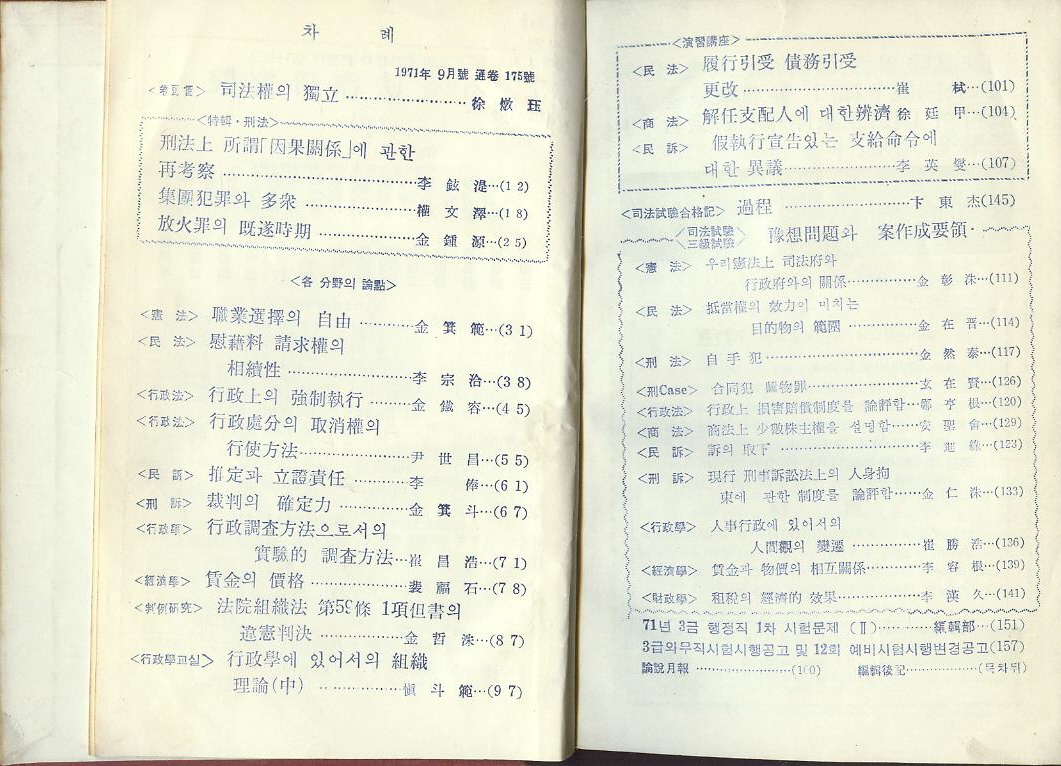 차 례
1971年 9月號 通卷 175號
<卷頭言> 司法權의 獨立 …………………… 徐 燉 珏
<特輯·刑法>
刑法上 所謂「因果關係」에 관한
再考察 …………………… 李 鉉 湜…(12)
集團犯罪와 多衆 …………………… 權 文 澤…(18)
放火罪의 既遂時期 …………………… 金 鍾 源…(25)
<各 分野의 論點>
<憲 法> 職業選擇의 自由 ………… 金 箕 範…(31)
<民 法> 慰藉料 請求權의
相續性 ………………… 李 宗 洽…(38)
<行政法> 行政上의 強制執行 ……… 金 鐵 容…(45)
<行政法> 行政處分의 取消權의
行使方法 ……………… 尹 世 昌…(55)
<民 訴> 推定과 立證責任 ………… 李 …(61)
<刑 訴> 裁判의 確定力 …………… 金 箕 斗…(67)
<行政學> 行政調査方法으로서의
實驗的 調査方法… 崔 昌 浩…(71)
<經濟學> 賃金의 價格 ……………… 裵 石…(78)
<判例研究> 法院組織法 第59條 1項但書의
違憲判決 ……………… 金 哲 洙…(87)
<行政學교실> 行政學에 있어서의 組織
理論(中) ……………… 愼 斗 範…(97)
<演習講座>
<民 法> 履行引受 債務引受
更改 …………………… 崔 栻…(101)
<商 法> 解任支配人에 대한辨濟 徐 廷 甲…(104)
<民 訴> 假執行宣告있는 支給命令에
대한 異議……………… 李 英 燮…(107)
<司法試驗合格記> 過程 ……………… 卞 東 杰(145)
<司法試驗
三級試驗> 豫想問題와 案作成要領
<憲 法> 우리憲法上 司法府와
行政府와의 關係………… 金 彰 洙…(111)
<民 法> 抵當權의 效力이 미치는
目的物의 範圍 ………… 金 在 晋…(114)
<刑 法> 自手犯 …………………… 金 然 泰…(117)
<刑Case> 合同犯 贓物罪………… 玄 在 賢…(126)
<行政法> 行政上 損害賠償制度를 論評함… 鄭 亨 根…(120)
<商 法> 商法上 少數株主權을 설명함…… 安 聖 會…(129)
<民 訴> 訴의 取下 ……………… 李 …(123)
<刑 訴> 現行 刑事訴訟法上의 人身拘
束에 관한 制度를 論評함…… 金 仁 洙…(133)
<行政學> 人事行政에 있어서의
人間觀의 變遷 ………… 崔 勝 浩…(136)
<經濟學> 賃金과 物價의 相互關係……… 李 容 根…(139)
<財政學> 租稅의 經濟的 效果………… 李 漢 久…(141)
71년 3급 행정직 1차 시험문제 (Ⅱ)……… 編輯部…(151)
3급외무직시험시행공고 및 12회 예비시험시행변경공고(157)
論說月報 ………………(100) 編輯後記………………(목차뒤)